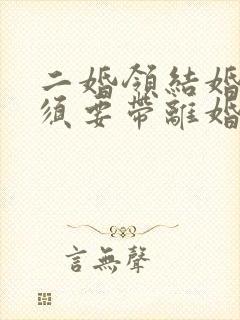 二婚領結婚
須要帶離婚
言無聲